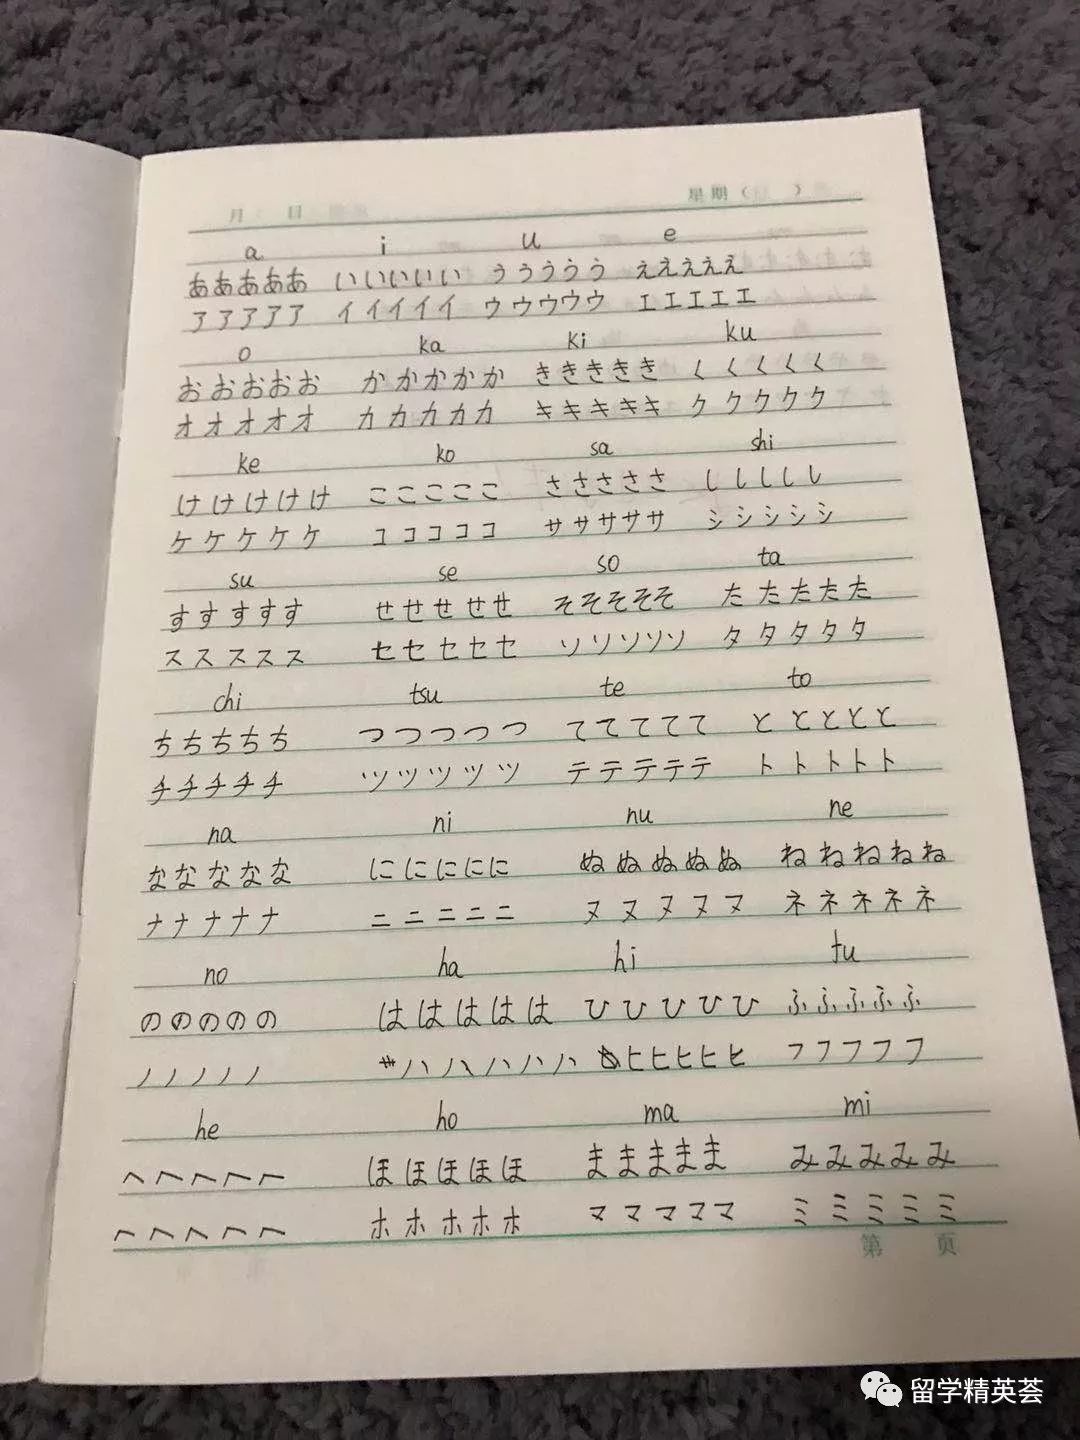 月 日 星期( )
a i u e
あああああ いいいいい ううううう えええええ
アアアアア イイイイイ ウウウウウ エエエエエ
o ka ki ku
おおおおお かかかかか ききききき くくくくく
オオオオオ カカカカカ キキキキキ ククククク
ke ko sa shi
けけけけけ こここここ さささささ ししししし
ケケケケケ コココココ ササササササ シシシシシ
su se so ta
すすすすす せせせせせ そそそそそ たたたたた
ススススス セセセセセ ソソソソソ タタタタタ
chi tsu te to
ちちちちち つつつつつ ててててて ととととと
チチチチチ ツツツツツ テテテテテ トトトトト
na ni nu ne
ななななな ににににに ぬぬぬぬぬ ねねねねね
ナナナナナ ニニニニニ ヌヌヌヌヌ ネネネネネ
no ha hi fu
ののののの ははははは ひひひひひ ふふふふふ
ノノノノノ ハハハハハ ヒヒヒヒヒ フフフフフ
he ho ma mi
へへへへへ ほほほほほ ままままま みみみみみ
ヘヘヘヘヘ ホホホホホ ママママママ ミミミミミ
第 页
留学精英荟